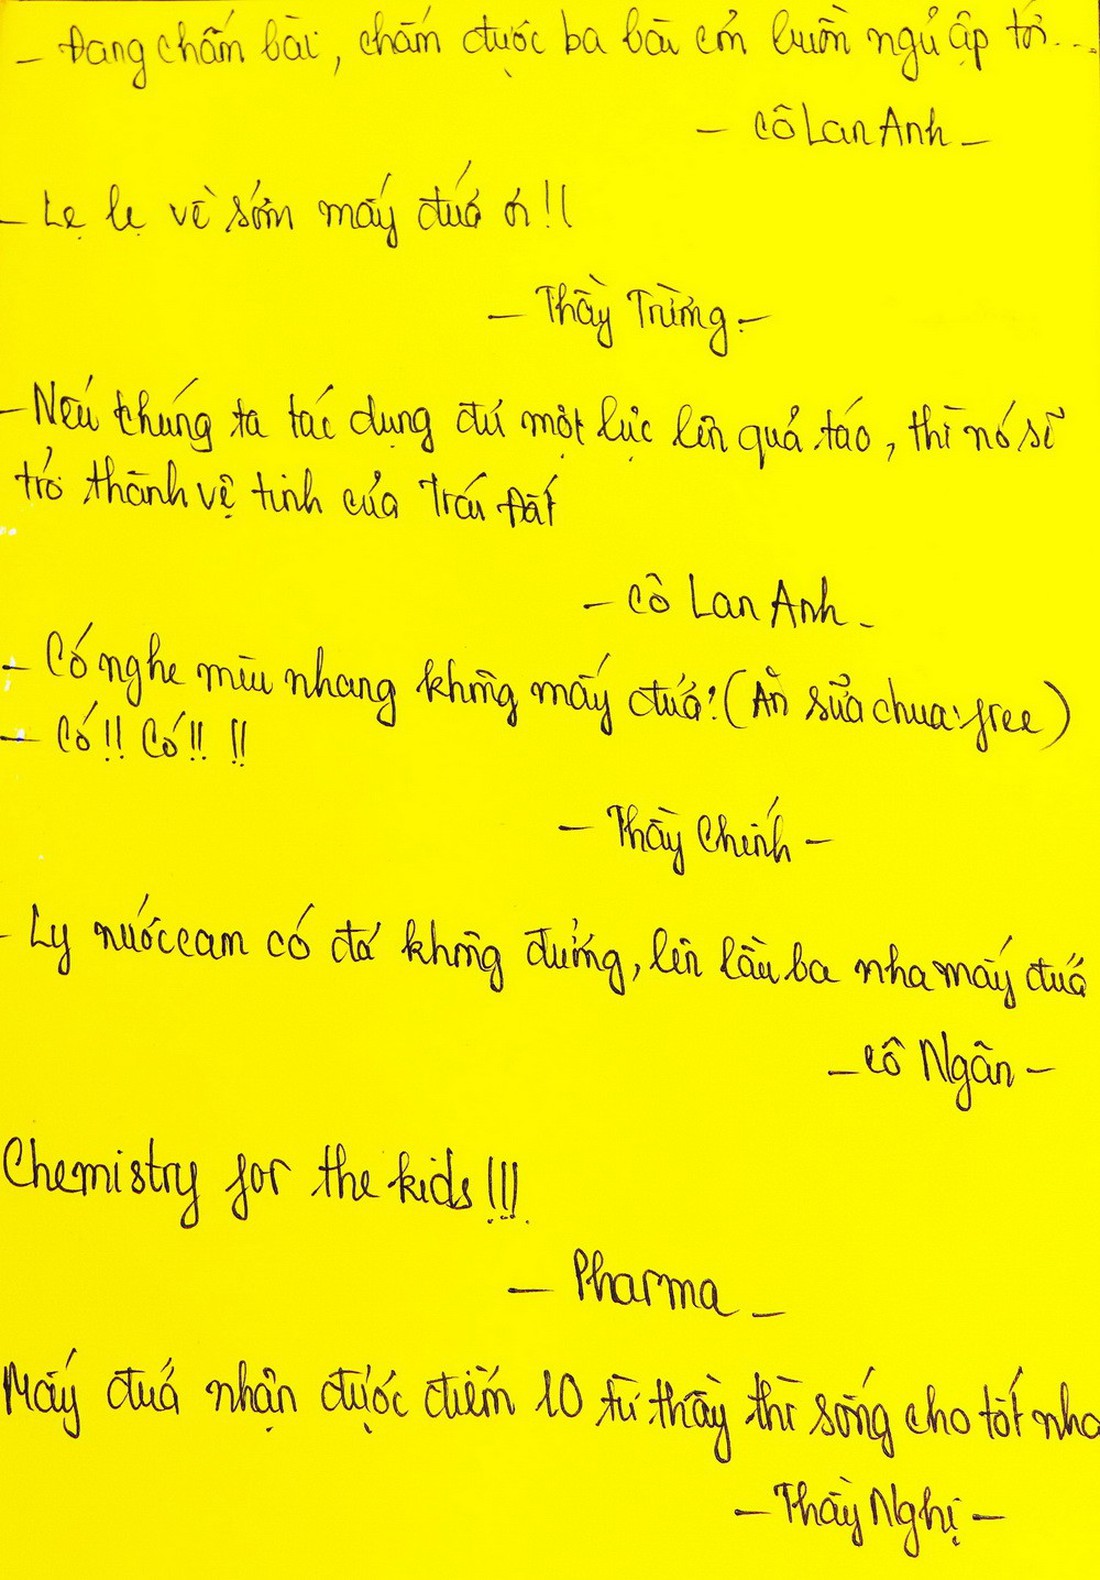 - Đang chấm bài, chấm được ba bài cơn buồn ngủ ập tới...
- Cô Lan Anh -
- Lẹ lẹ về sớm mấy đứa ơi!!
- Thầy Trừng -
- Nếu chúng ta tác dụng đủ một lực lên quả táo, thì nó sẽ
trở thành vệ tinh của Trái Đất
- Cô Lan Anh -
- Có nghe mùi nhang không mấy đứa? (Ăn sữa chua free)
- Có!! Có!! !!
- Thầy Chính -
- Ly nước cam có đá không đường, lên lầu ba nha mấy đứa
- Cô Ngân -
Chemistry for the kids!!!
- Pharma -
Mấy đứa nhận được điểm 10 từ thầy thì sống cho tốt nha
- Thầy Nghị -